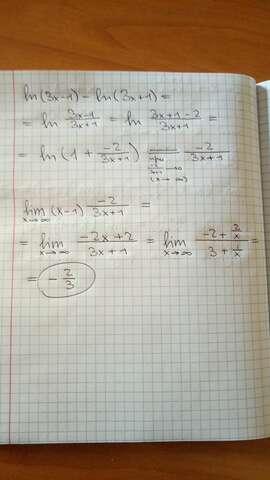 ln(3x-1) - ln(3x+1) =
= ln \frac{3x-1}{3x+1} = ln \frac{3x+1-2}{3x+1} =
= ln (1 + \frac{-2}{3x+1}) \frac{-2}{3x+1}
при
→0
(x → ∞)
lim_{x→∞} (x-1) \frac{-2}{3x+1} =
= lim_{x→∞} \frac{-2x+2}{3x+1} = lim_{x→∞} \frac{-2+\frac{2}{x}}{3+\frac{1}{x}} =
= -\frac{2}{3}